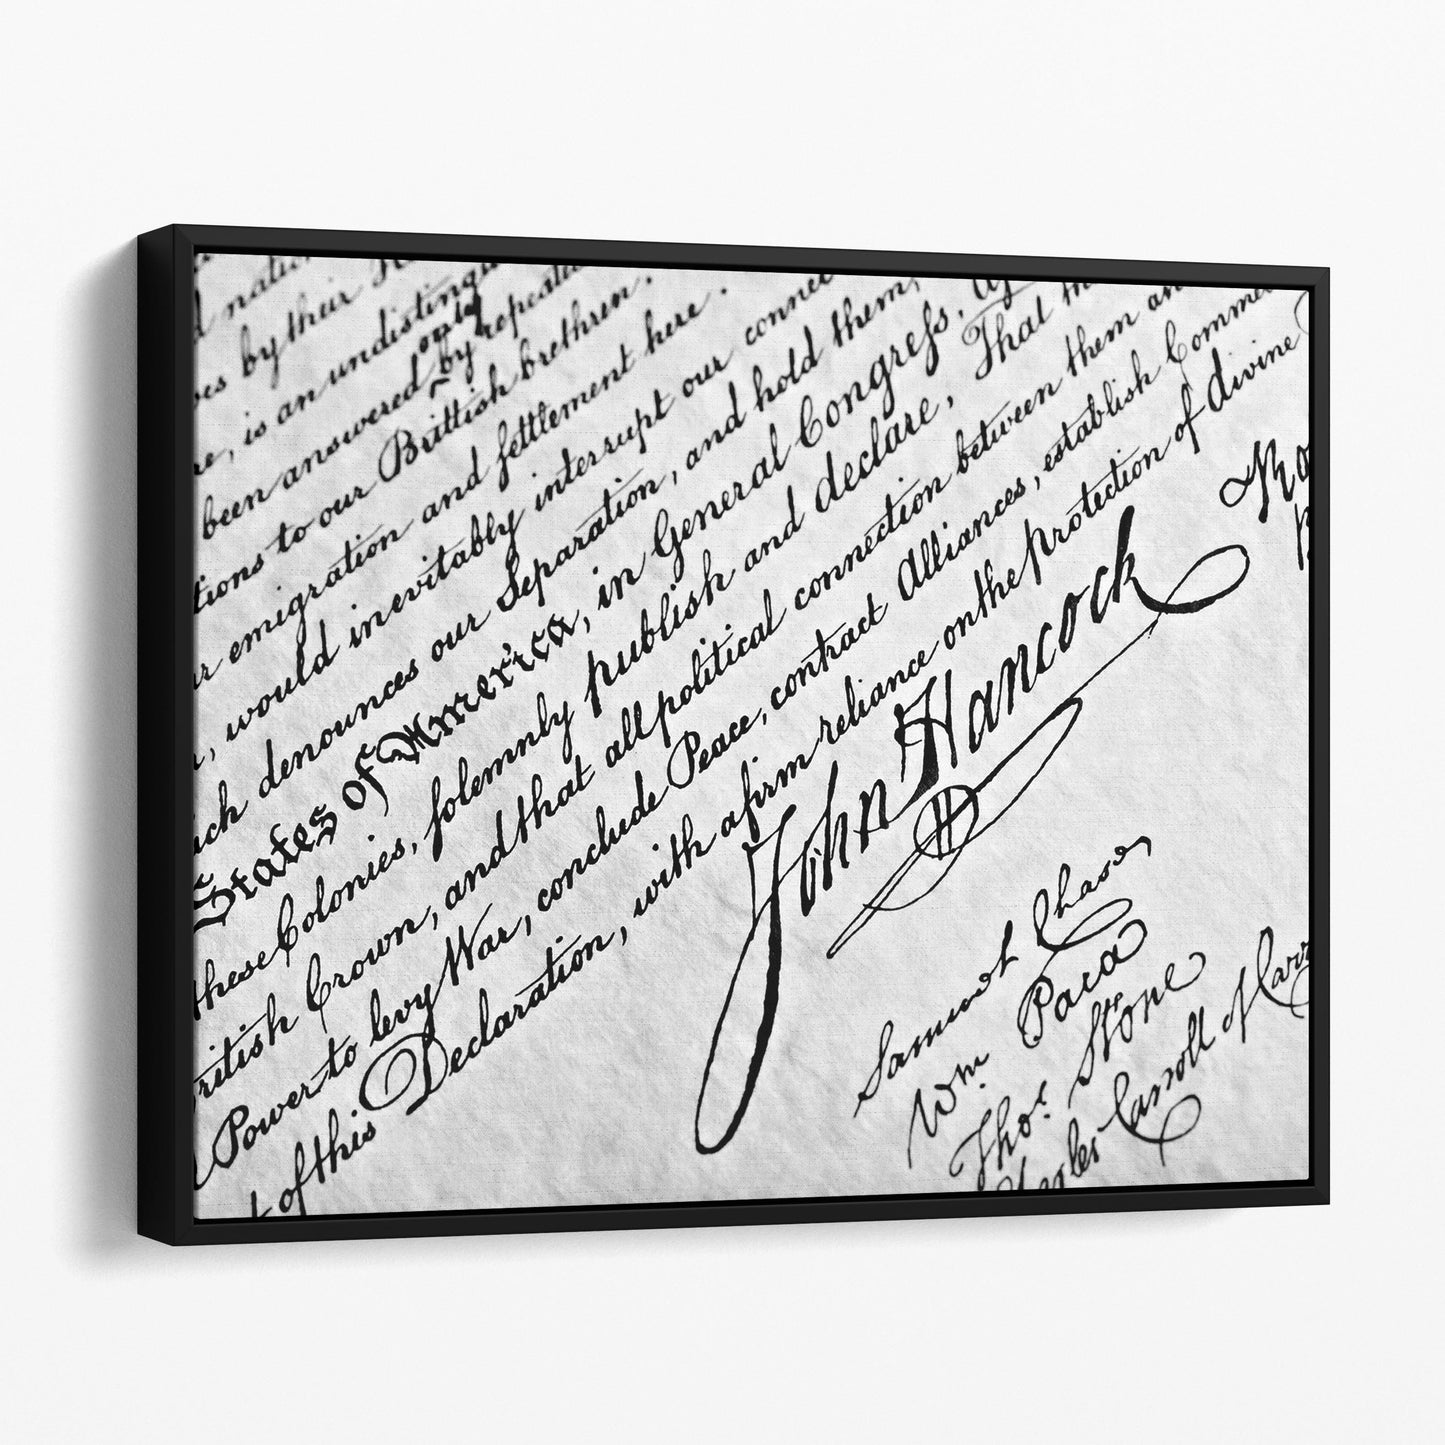 d nation
es by their
re, is an undistingu
only
been answered by repeated
tions to our Brittish brethren.
r emigration and settlement here.
, would inevitably interrupt our connec
ich denounces our Separation, and hold them,
States of America, in General Congress,
these Colonies, solemnly publish and declare, That th
ritish Crown, and that all political connection between them an
Power to levy War, conclude Peace, contract Alliances, establish Comme
t of this Declaration, with a firm reliance on the protection of divine
John Hancock
Ro
Samuel Chase
Wm. Paca
Thos. Stone
Charles Carroll of Carr